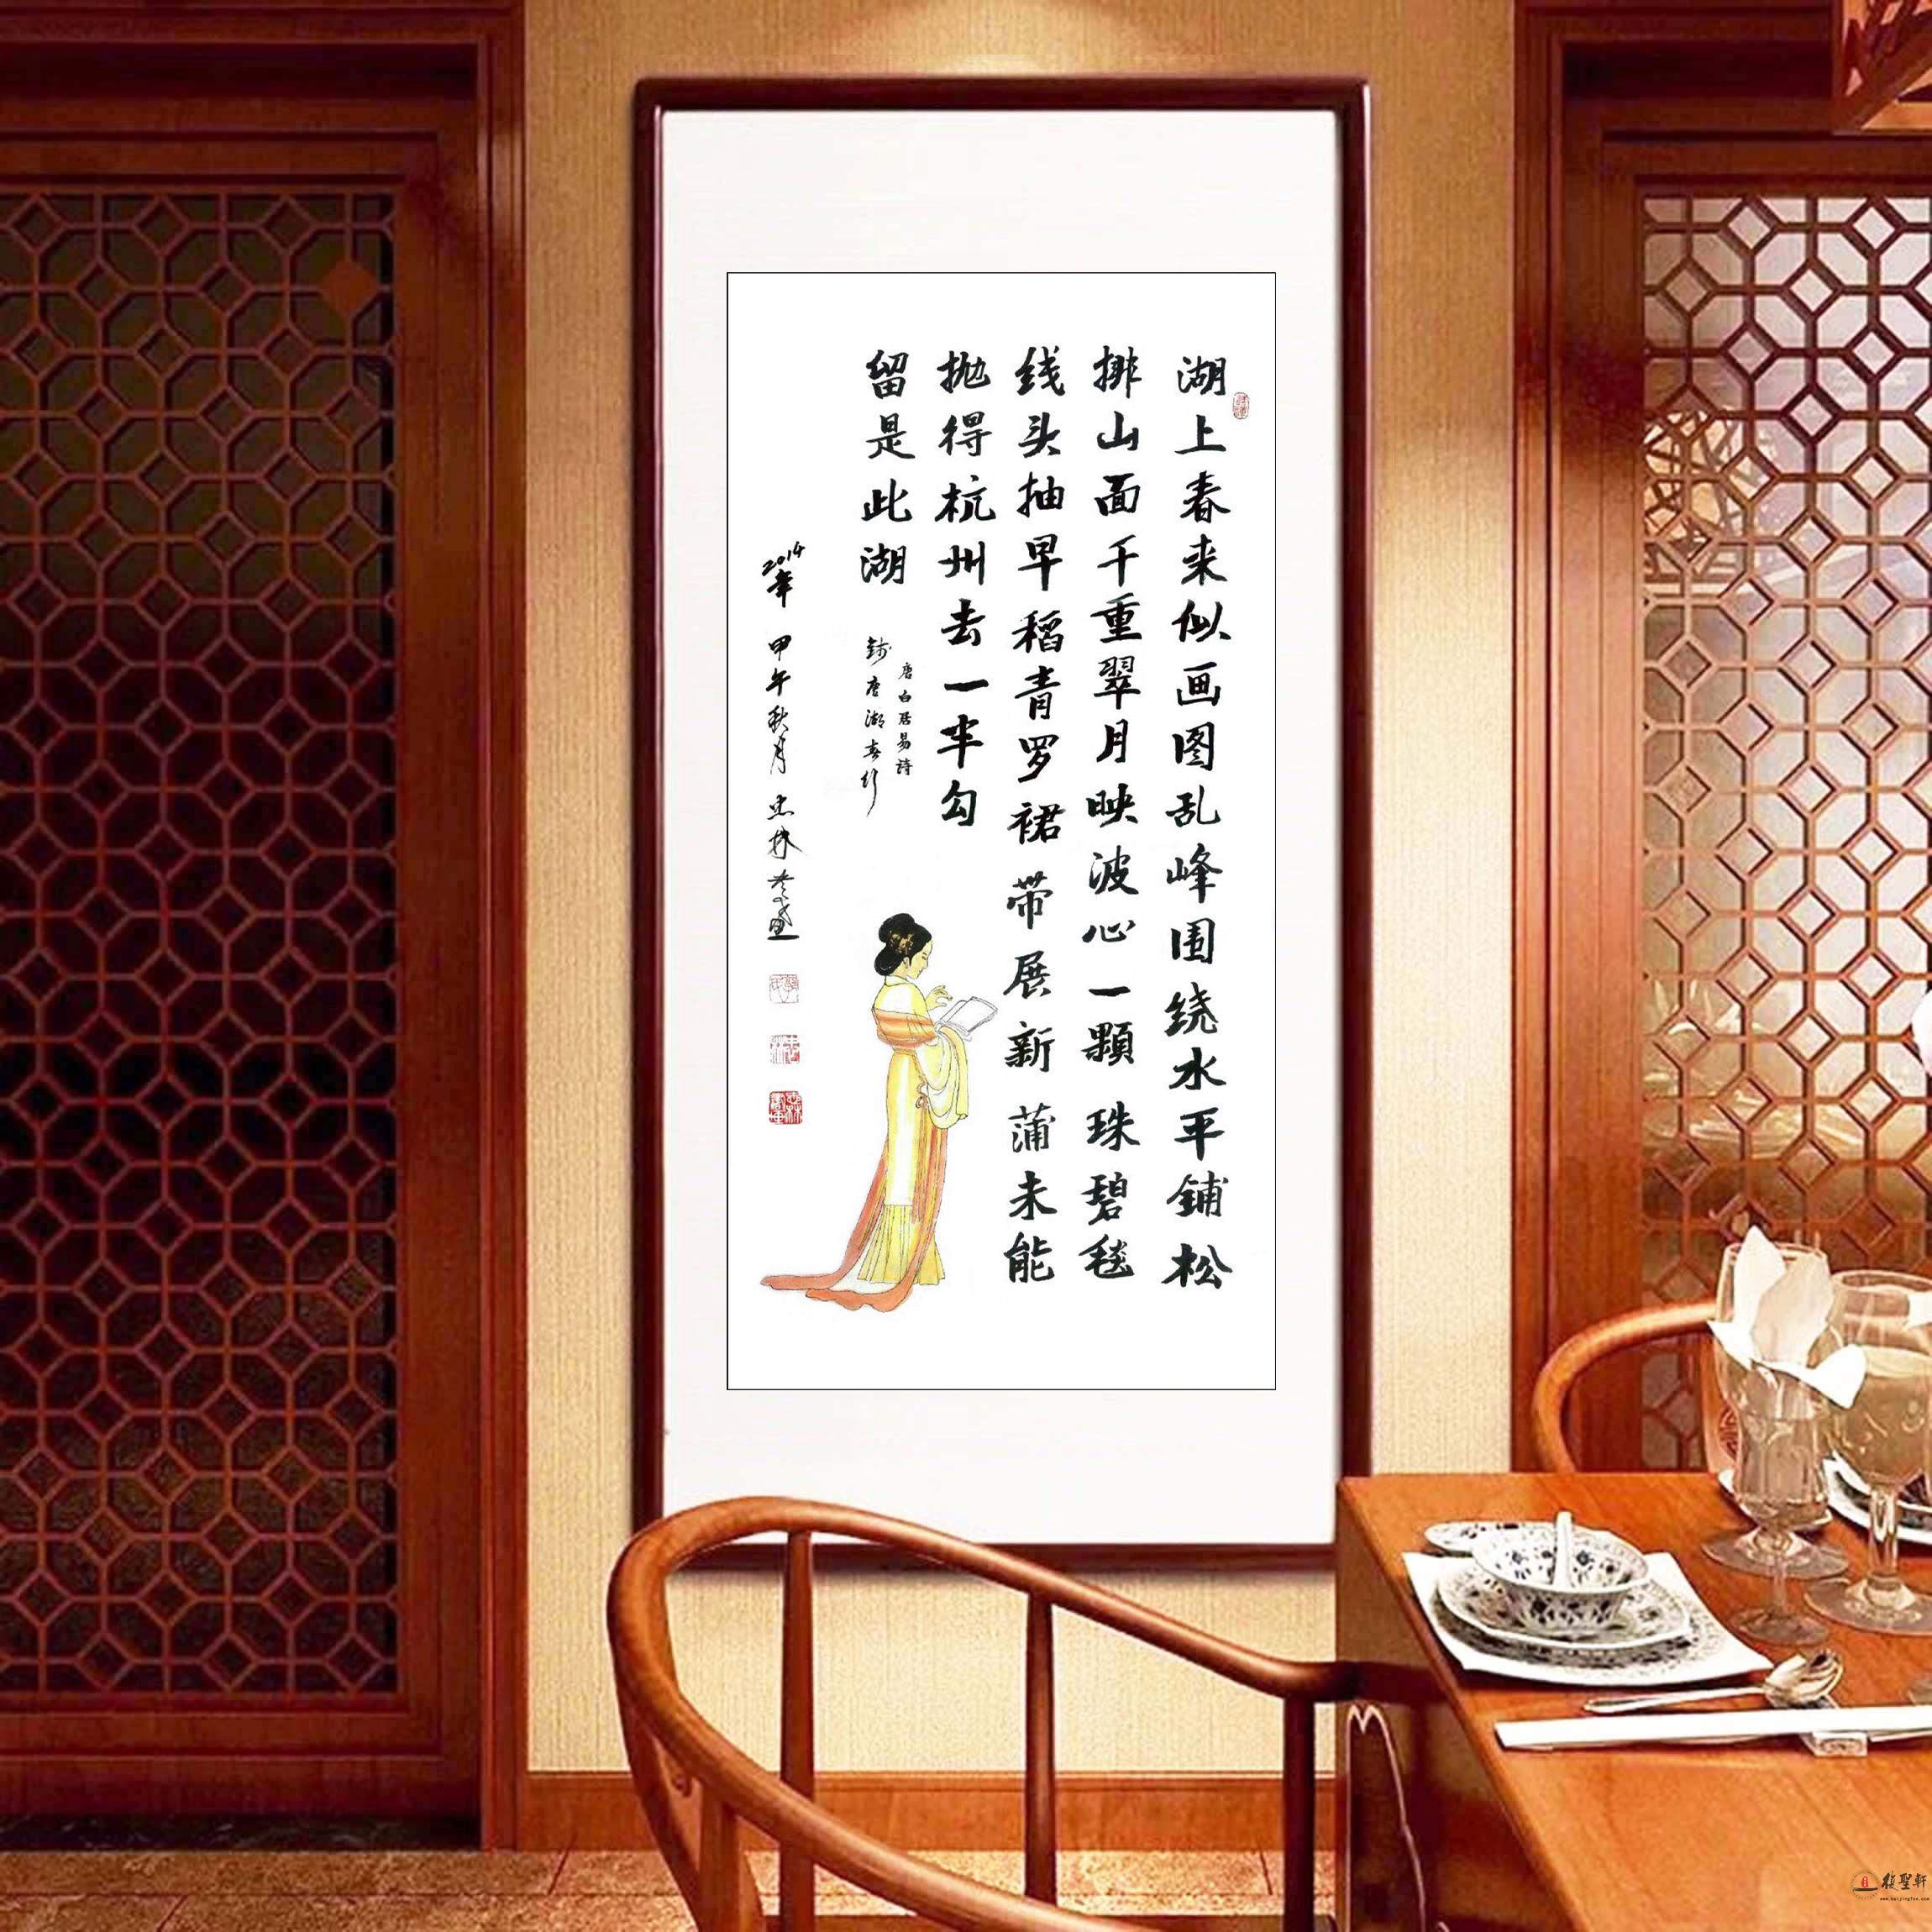 湖上春来似画图乱峰围绕水平鋪松
排山面千重翠月映波心一顆珠碧毯
线头抽早稻青罗裙带展新蒲未能
抛得杭州去一半勾
留是此湖
唐白居易詩
钱唐湖春行
2014年 甲午秋月 忠林